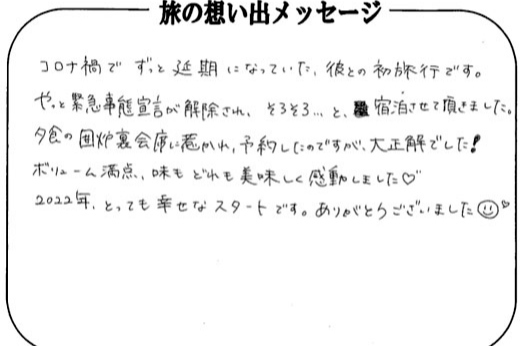 旅の想い出メッセージ
コロナ禍で ずっと延期になっていた、彼との初旅行です。
やっと緊急事態宣言が解除され、そろそろ…と、宿泊させて頂きました。
夕食の囲炉裏会席に惹かれ、予約したのですが、大正解でした!
ボリューム満点、味もどれも美味しく感動しました♡
2022年、とっても幸せなスタートです。ありがとうございました☺♡